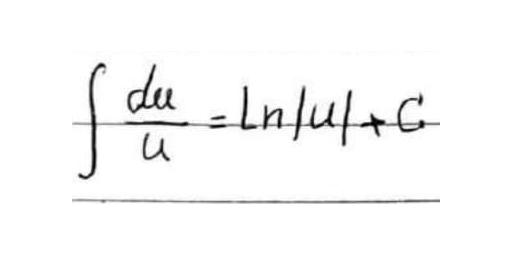 ∫ du/u = Ln|u| + C